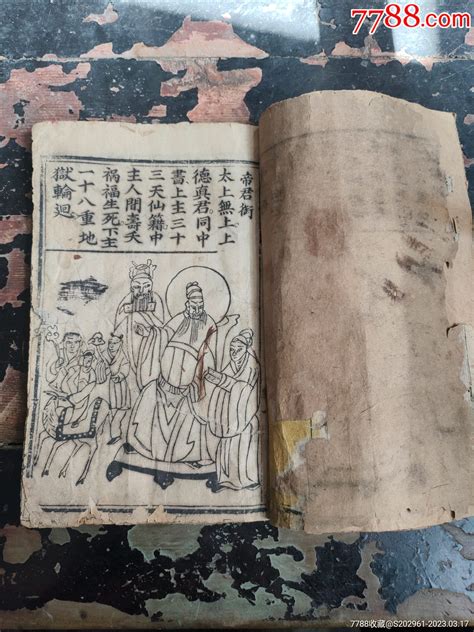 7788.com
帝君衔
太上無上上
德真君同中
書上主三十
三天仙籍中
主人間壽夭
祸福生死下主
一十八重地
獄輪廻
7788收藏@S202961-2023.03.17